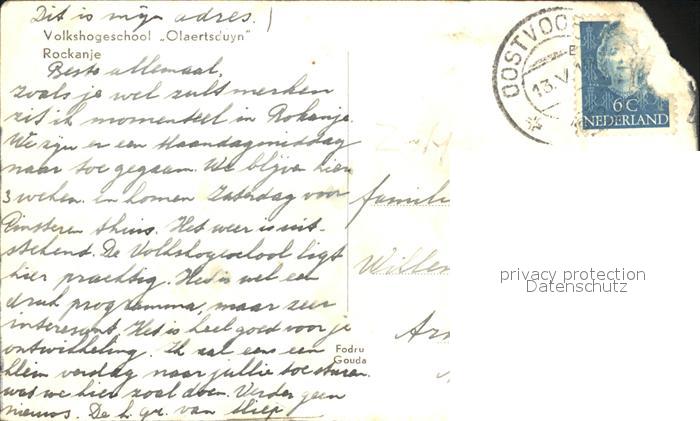 Dit is mijn adres.
Volkshogeschool „Olaertsduyn"
Rockanje
Beste allemaal,
zoals je wel zult merken
zit ik momenteel in Rokanje.
We zijn er een Maandagmiddag
naar toe gegaan. We blijven hier
3 weken en komen Zaterdag voor
Pinsteren thuis. Het weer is uit-
stekend. De Volkshogeschool ligt
hier prachtig. Het is wel een
druk programma, maar zeer
interesant. Het is heel goed voor je
ontwikkeling. Ik zal eens een
klein verslag naar jullie toe sturen
wat we hier zoal doen. Verder geen
nieuws. De h. gr. van Miep
Fodru
Gouda
OOSTVOO
13.V.1
6 C
NEDERLAND
famili
Willem
privacy protection
Datenschutz